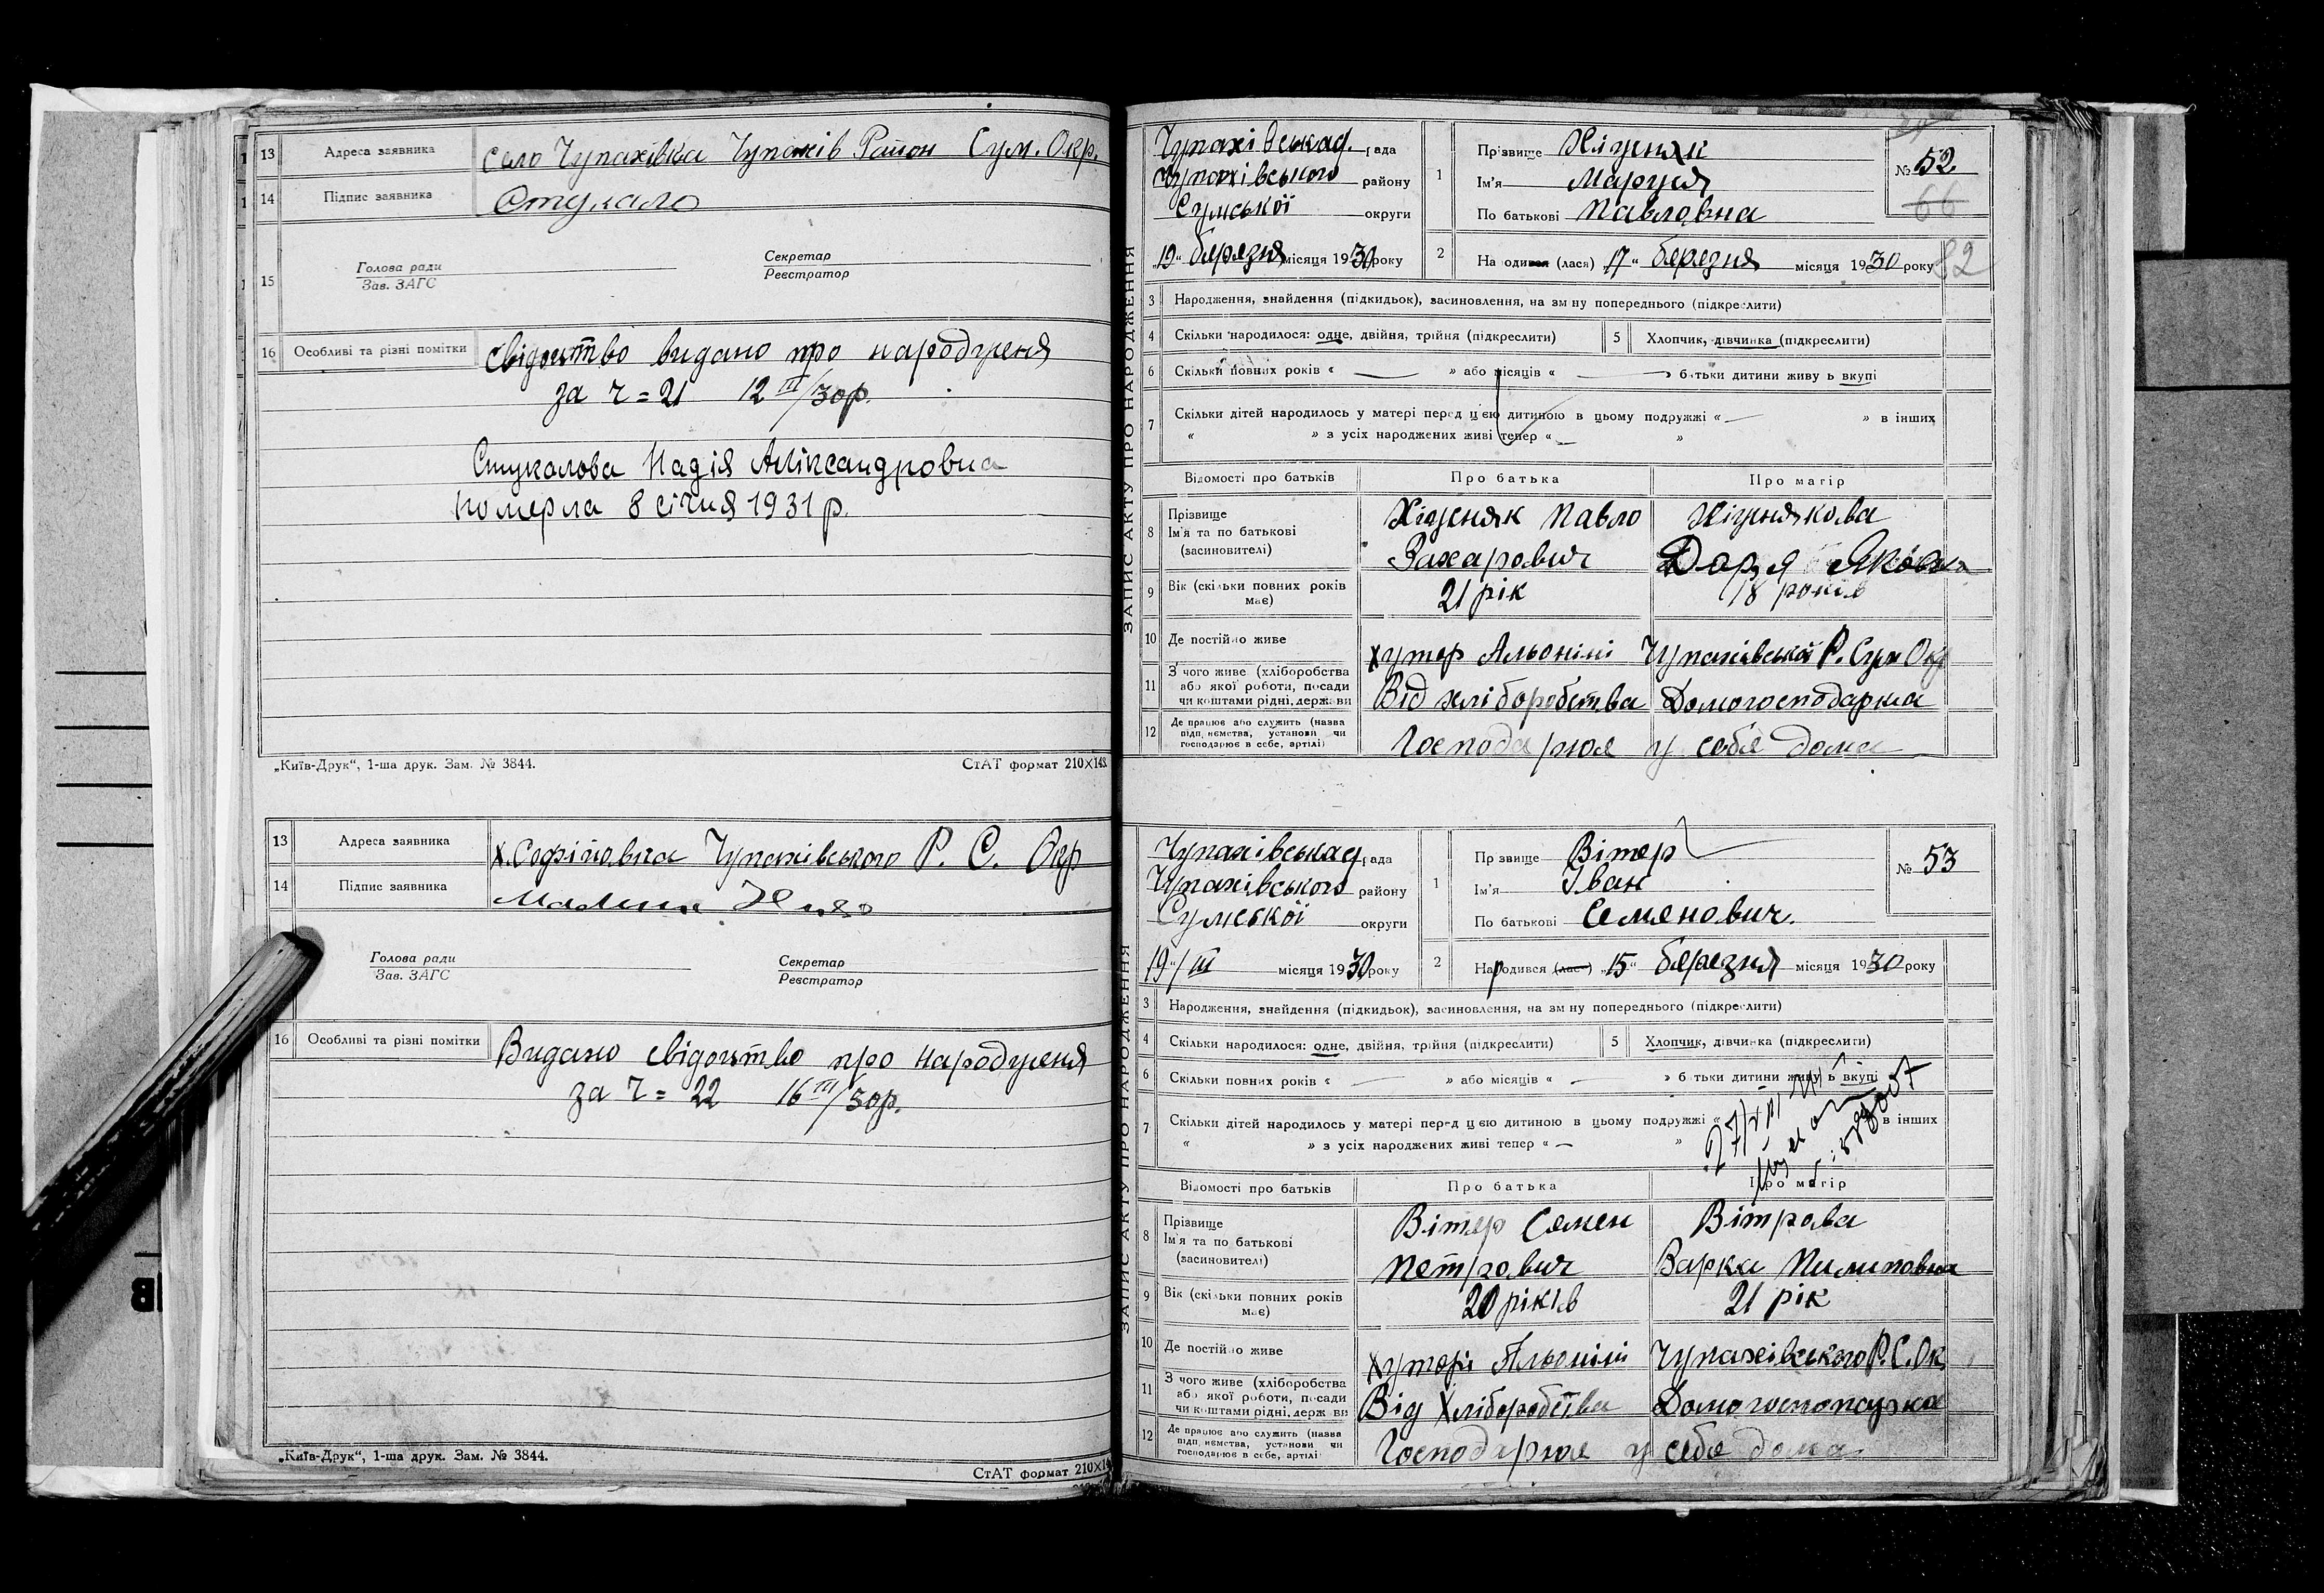 13 Адреса заявника село Чупахівка Чупахів Район Сум. Окр.
14 Підпис заявника Стукало
15 Голова ради Зав. ЗАГС Секретар Реєстратор
16 Особливі та різні помітки свідоцтво видано про народженя
за ч = 21 12 III/30р.
Стукалова Надія Аліксандровна
померла 8 січня 1931 р.
„Київ-Друк“, 1-ша друк. Зам. № 3844. СтАТ формат 210×148
13 Адреса заявника х. Софіовка Чупахівського Р. С. Окр
14 Підпис заявника
Голова ради Зав. ЗАГС Секретар Реєстратор
16 Особливі та різні помітки Видано свідоцтво про народженя
за ч = 22 16 III/30р.
„Київ-Друк“, 1-ша друк. Зам. № 3844.
СтАТ формат 210×14
ЗАПИС АКТУ ПРО НАРОДЖЕННЯ
Чупахівська рада
Чупахівського району
Сумської округи
„19“ березня місяця 1930 року
1 Прізвище Хіценяк
Ім'я Маруся
По батькові Павловна
№ 52
66
82
2 Народився (лася) „17“ березня місяця 1930 року
3 Народження, знайдення (підкидьок), засиновлення, на зміну попереднього (підкреслити)
4 Скільки народилося: одне, двійня, трійня (підкреслити) 5 Хлопчик, дівчинка (підкреслити)
6 Скільки повних років « — » або місяців « — » батьки дитини живуть вкупі
7 Скільки дітей народилось у матері перед цією дитиною в цьому подружжі « — » в інших
« » з усіх народжених живі тепер « — »
Відомості про батьків Про батька Про матір
8 Прізвище Ім'я та по батькові (засиновителі) Хіценяк Павло Хіценякова
Захарович Даря Яковна
9 Вік (скільки повних років має) 21 рік 18 років
10 Де постійно живе хутор Альонині Чупахівській Р. Сум Окр
11 З чого живе (хліборобства або якої роботи, посади чи коштами рідні, держави Від хліборобства Домогосподарка
12 Де працює або служить (назва підприємства, установи чи господарює в себе, артілі) Господарюя у себя дома
ЗАПИС АКТУ ПРО НАРОДЖЕННЯ
Чупахівська рада
Чупахівського району
Сумської округи
19“/III місяця 1930 року
1 Прізвище Вітер
Ім'я Іван
По батькові Семянович.
№ 53
2 Народився (лася) „15“ березня місяця 1930 року
3 Народження, знайдення (підкидьок), засиновлення, на зміну попереднього (підкреслити)
4 Скільки народилося: одне, двійня, трійня (підкреслити) 5 Хлопчик, дівчинка (підкреслити)
6 Скільки повних років « — » або місяців « — » батьки дитини живуть вкупі
7 Скільки дітей народилось у матері перед цією дитиною в цьому подружжі « в інших
« » з усіх народжених живі тепер « — »
Відомості про батьків Про батька Про матір
8 Прізвище Ім'я та по батькові (засиновителі) Вітер Семен Вітрова
Петрович Варка Пилиповна
9 Вік (скільки повних років має) 20 років 21 рік
10 Де постійно живе хуторі Альонині Чупахівського Р. С. Ок
11 З чого живе (хліборобства або якої роботи, посади чи коштами рідні, держави Від Хліборобства Домогоспопарка
12 Де працює або служить (назва підприємства, установи чи господарює в себе, артілі) Господарюя у себе дома